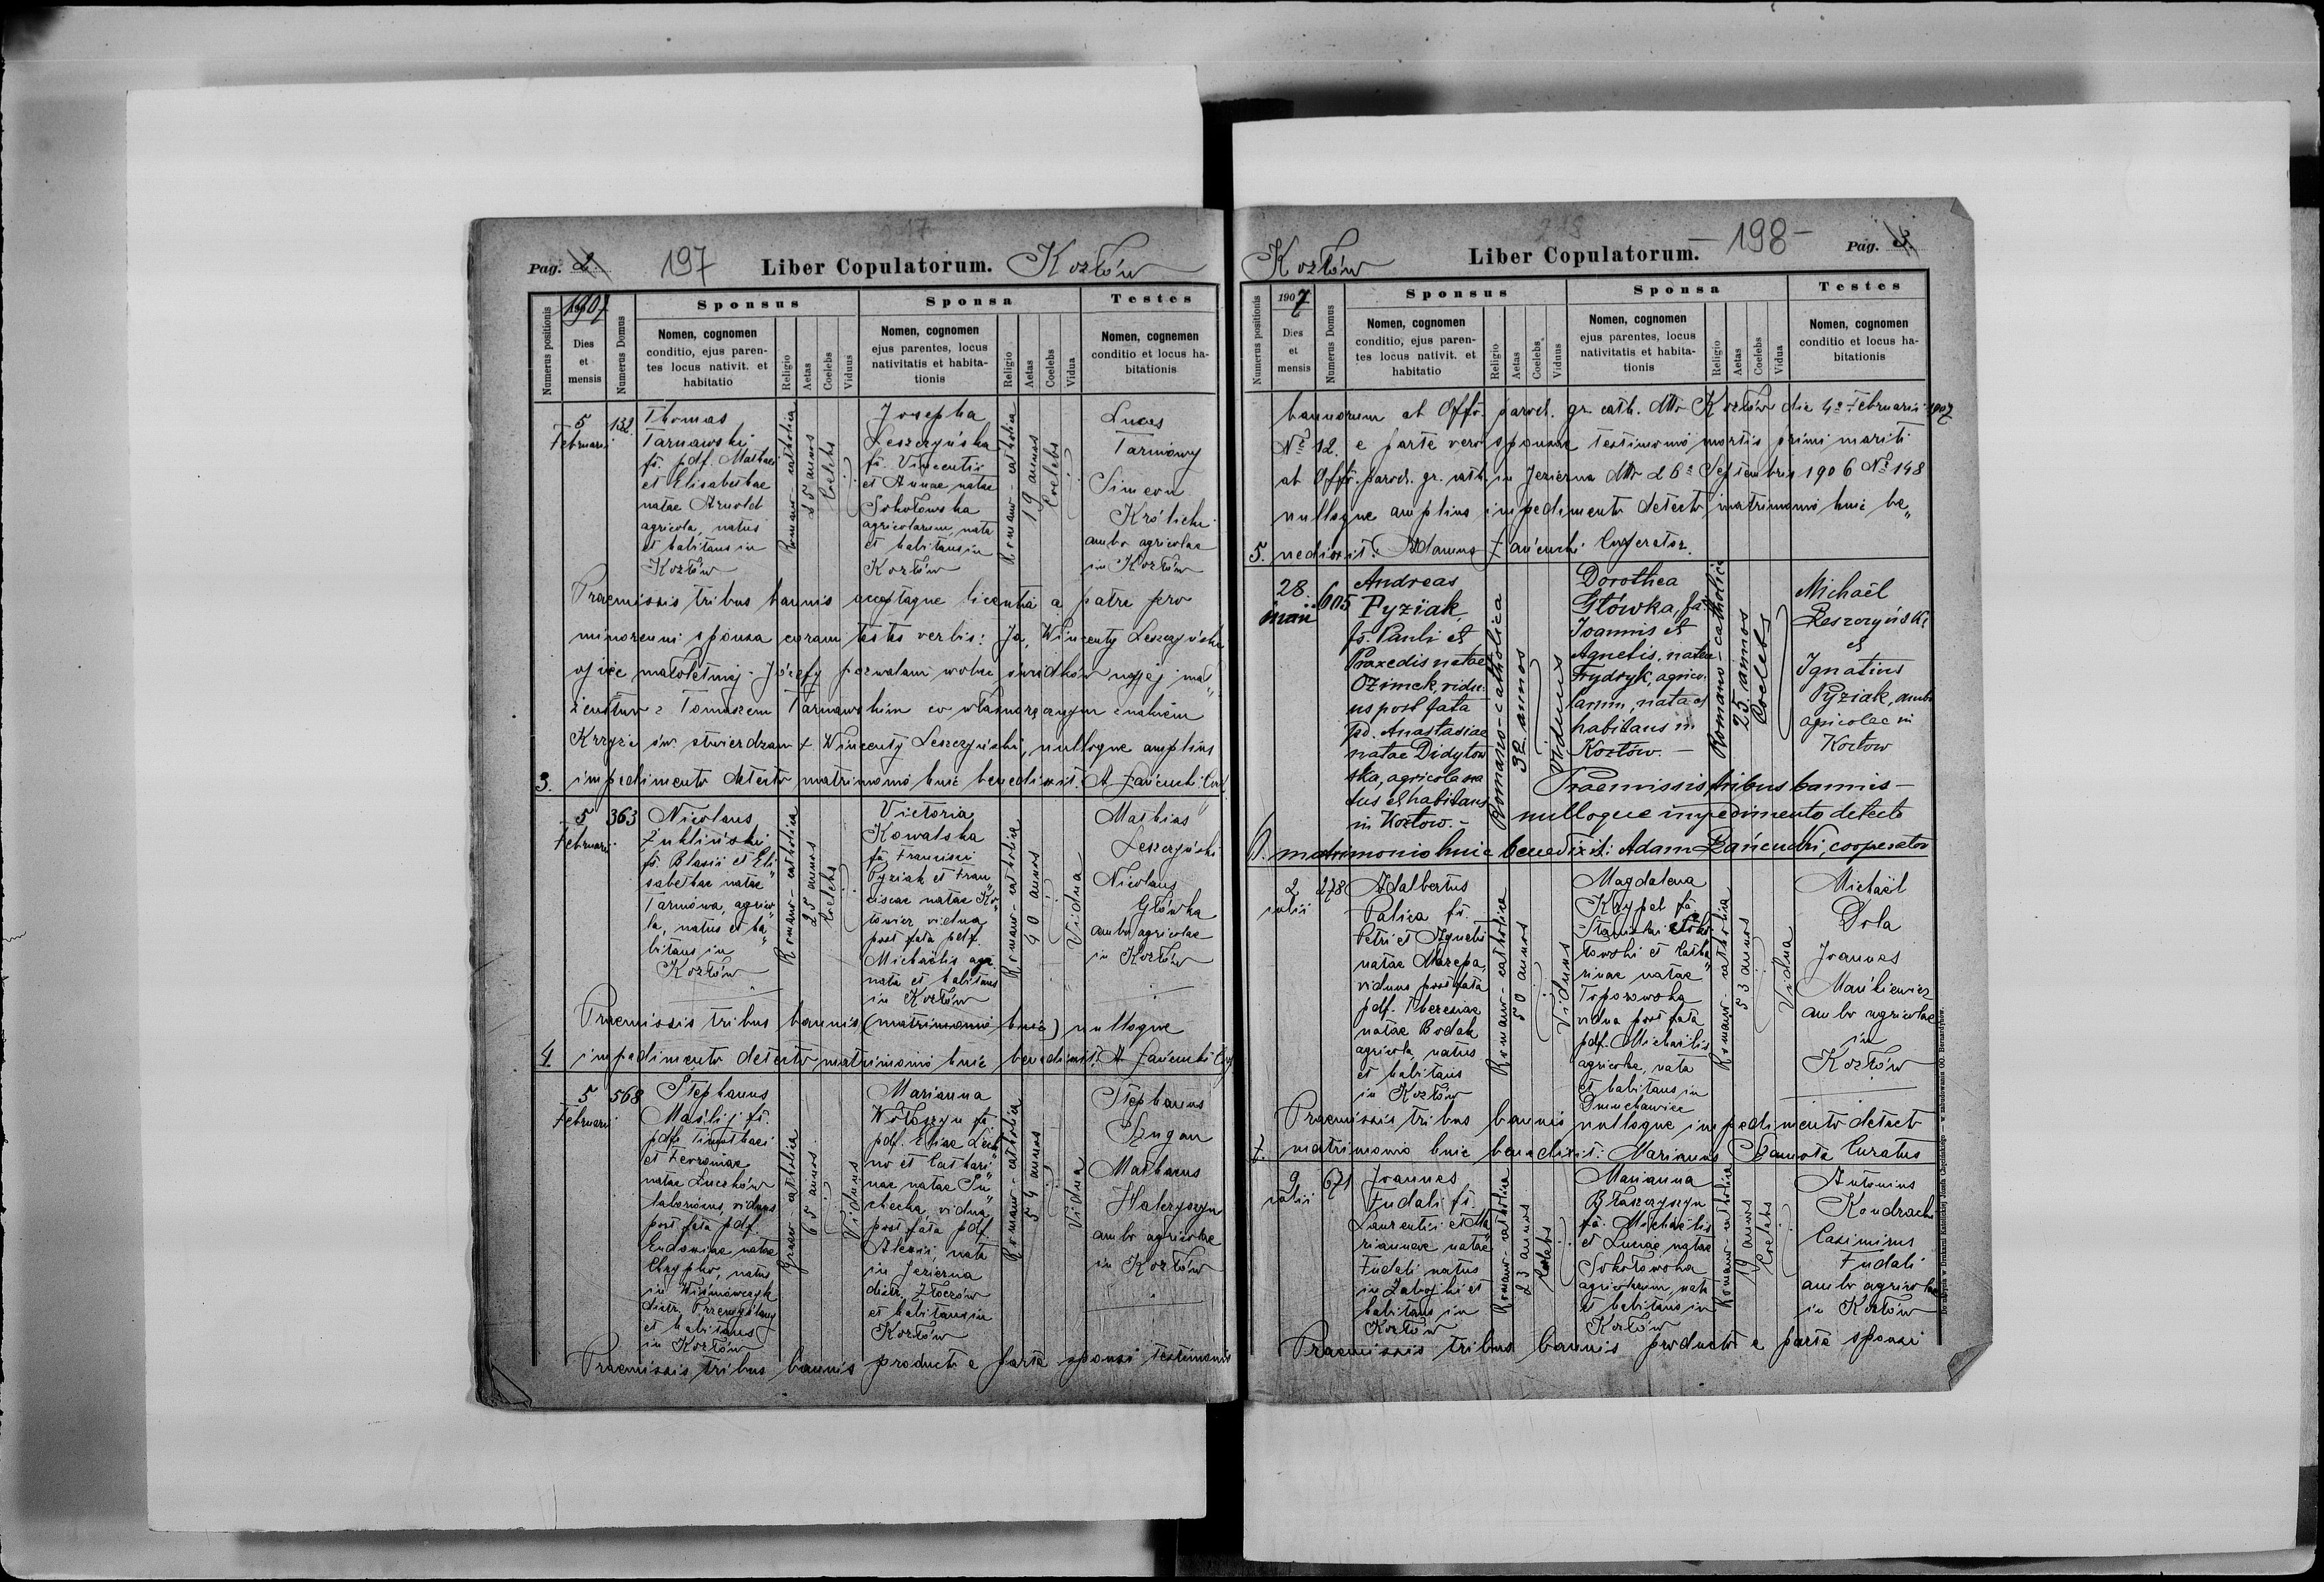 Pag. 2. 197 Liber Copulatorum. Kozłów
Numerus positionis
1907
Dies
et
mensis
Numerus Domus
Sponsus
Nomen, cognomen
conditio, ejus paren-
tes locus nativit. et
habitatio
Religio
Aetas
Coelebs
Viduus
Sponsa
Nomen, cognomen
ejus parentes, locus
nativitatis et habita-
tionis
Religio
Aetas
Coelebs
Vidua
Testes
Nomen, cognemen
conditio et locus ha-
bitationis
5
Februarii
132
Thomas
Tarnawski
fs. pdf. Mathaei
et Elisabethae
natae Arnold
agricola, natus
et habitans in
Kozłów
Romano-catholica
25 annos
Coelebs
Josepha
Leszczyńska
fa. Vincentii
et Annae natae
Sokołowska
agricolarum nata
et habitans in
Kozłów
Romano-catholica
19 annos
Coelebs
Lucas
Tarnowy
Simeon
Królicki
ambo agricolae
in Kozłów
Praemissis tribus bannis acceptaque licentia a patre pro
minorenni sponsa coram testes verbis: Ja, Wincenty Leszczyński
ojciec małoletniej Józefy pozwalam wobec świadków na jej mał„
żeństwo z Tomaszem Tarnawskim co własnoręcznym znakiem
Krzyża św. stwierdzam + Wincenty Leszczyński, nulloque amplius
3. impedimento detecto matrimonio huic benedixit. A Łańcucki
5
Februarii
363
Nicolaus
Żukliński
fs. Blasii et Eli„
sabethae natae
Tarnowa, agrico„
la, natus et ha„
bitans in
Kozłów
Romano-catholica
25 annos
Coelebs
Victoria
Kowalska
fa Francisci
Pyziak et Fran„
ciscae natae Ko„
towicz vidua
post fata pdf.
Michaëlis agr.
nata et habitans
in Kozłów
Romano-catholica
40 annos
Vidua
Mathias
Leszczyński
Nicolaus
Główka
ambo agricolae
in Kozłów
Praemissis tribus bannis (matrimonio huic) nulloque
4. impedimento detecto matrimonio huic benedixit. A Łańcucki
5
Februarii
568
Stephanus
Maślij fs.
pdf. Timothaei
et Fevroniae
natae Luczków
laboriosus, viduus
post fata pdf.
Eudoxiae natae
Chrypko, natus
in Wiśniowczyk
distr. Przemyślany
et habitans
in Kozłów
Graeco-catholica
65 annos
Viduus
Marianna
Wołoszyn fa
pdf. Eliae
et Cathari„
nae natae
vidua
post fata pdf.
Alexii, nata
in Jezierna
distr. Złoczów
et habitans in
Kozłów
Romano-catholica
54 annos
Vidua
Stephanus
Szugan
Mathaeus
Haleryszyn
ambo agricolae
in Kozłów
Praemissis tribus bannis producto e parte sponsi testimonio
Kozłów Liber Copulatorum. — 198 — Pag. 3.
Numerus positionis
1907
Dies
et
mensis
Numerus Domus
Sponsus
Nomen, cognomen
conditio, ejus paren-
tes locus nativit. et
habitatio
Religio
Aetas
Coelebs
Viduus
Sponsa
Nomen, cognomen
ejus parentes, locus
nativitatis et habita-
tionis
Religio
Aetas
Coelebs
Vidua
Testes
Nomen, cognomen
conditio et locus ha-
bitationis
bannorum ab Offo. paroch. gr. cath. dtto Kozłów die 4a Februarii 1907
No 12. e parte vero sponsae testimonio mortis primi mariti
ab Offo. paroch. gr. cath. in Jezierna dtto 26a Septembris 1906 No 148
nulloque amplius impedimento detecto matrimonio huic be„
5. nedixit: Adamus Łańcucki Cooperator.
28
maii
605
Andreas
Pyziak,
fs. Pauli et
Praxedis natae
Ozimek, vidu-
us post fata
pd. Anastasiae
natae Didytow
ska, agricola na
tus et habitans
in Kozłow. -
Romano-catholica
32 annos
Viduus
Dorothea
Główka, fa
Joannis et
Agnetis, natae
Frydryk, agrico-
larum, nata et
habitans in
Kozłów. -
Romano-catholica
25 annos
Coelebs
Michaël
Leszczyński
et
Ignatius
Pyziak, ambo
agricolae in
Kozłow
Praemissis tribus bannis -
nulloque impedimento detecto
6. matrimonio huic benedixit: Adam Łańcucki, cooperator
2
julii
278
Adalbertus
Palica fs.
Petri et Agneti
natae Mazepa,
viduus post fata
pdf. Theresiae
natae Bodak
agricola, natus
et habitans
in Kozłów
Romano-catholica
50 annos
Viduus
Magdalena
Krypel fa
Stanislai
et Catha„
rinae natae
Toporowska
vidua post fata
pdf. Michaëlis
agricolae, nata
et habitans in
Dmuchawiec
Romano-catholica
53 annos
Vidua
Michaël
Dola
Joannes
Mańkiewicz
ambo agricolae
in
Kozłów
Praemissis tribus bannis nulloque impedimento detecto
7. matrimonio huic benedixit: Marianus Curatus
9
julii
671
Joannes
Fudali fs.
Laurentii et Ma„
riannae natae
Fudali natus
in Załojki et
habitans in
Kozłów
Romano-catholica
23 annos
Coelebs
Marianna
Błaszczyszyn
fa. Michaëlis
et Luciae natae
Sokołowska
agricolarum, nata
et habitans in
Kozłów
Romano-catholica
19 annos
Coelebs
Antonius
Kondracki
Casimirus
Fudali
ambo agricolae
in Kozłów
Praemissis tribus bannis producto e parte sponsi